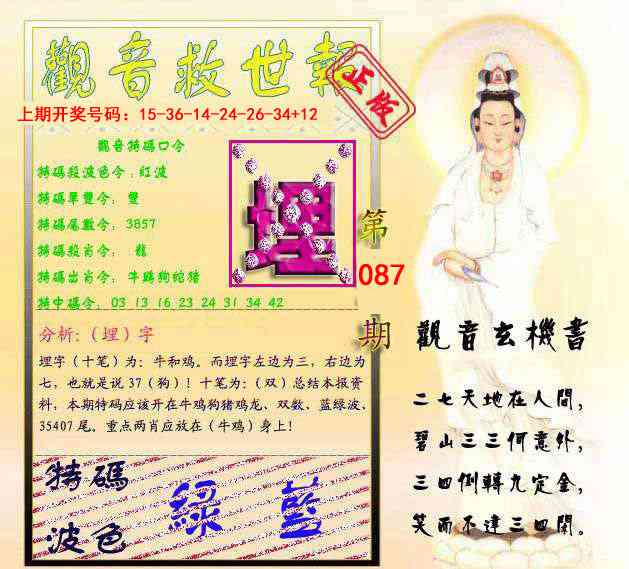 觀音救世報
正版
上期开奖号码：15-36-14-24-26-34+12
觀音特碼口令
特碼殺波色令：紅波
特碼單雙令：雙
特碼尾數令：3857
特碼殺肖令：龍
特碼出肖令：牛鷄狗蛇猪
特中碼令：03 13 16 23 24 31 34 42
埋
第
087
期
分析：（埋）字
埋字（十笔）为：牛和鸡。而埋字左边为三，右边为
七，也就是说37（狗）！十笔为：（双）总结本报资
料，本期特码应该开在牛鸡狗猪鸡龙、双数、蓝绿波、
35407尾。重点两肖应放在（牛鸡）身上！
特碼
波色
綠 藍
觀音玄機書
二七天地在人間，
碧山三三何意外，
三四倒轉九定金，
笑而不達三四開。